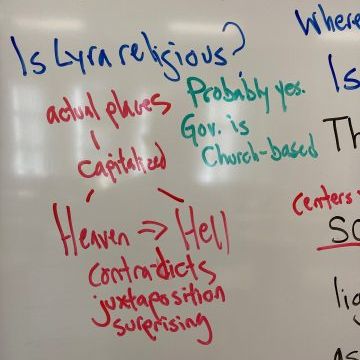 Is Lyra religious?
Probably yes.
Gov. is
Church-based
actual places
capitalized
Heaven => Hell
contradicts
juxtaposition
surprising
Where
Is
Th
centers
so
lig
as